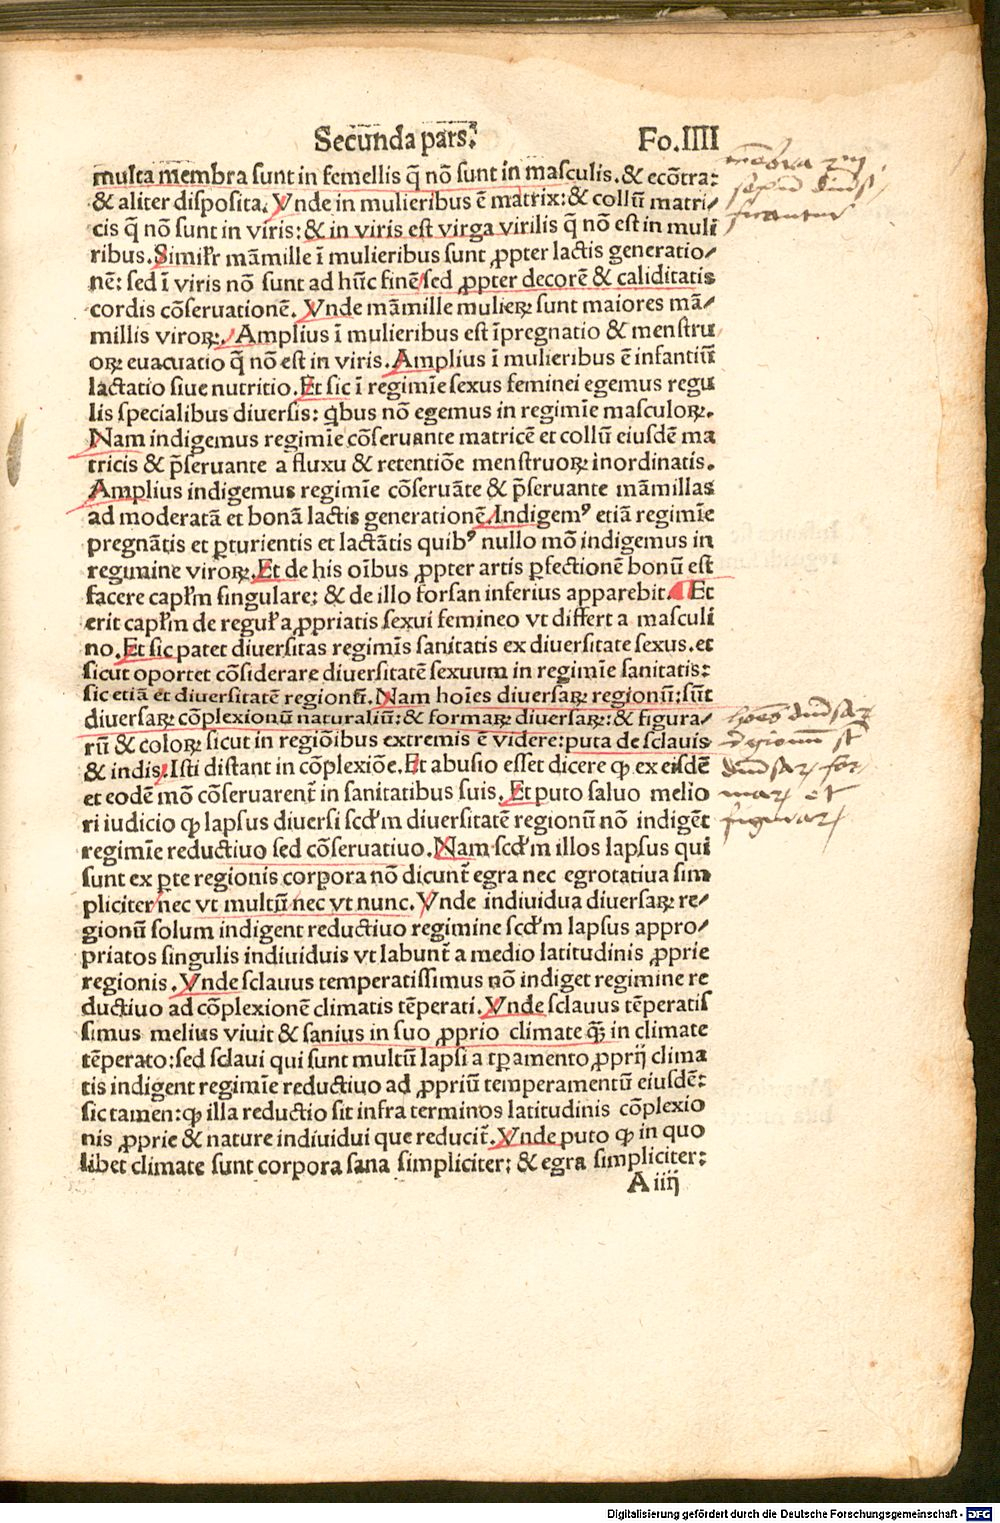 Secunda pars. Fo.IIII
multa membra sunt in femellis q̃ nõ sunt in masculis. & ecõtra:
& aliter disposita. Vnde in mulieribus ẽ matrix: & collũ matri/
cis q̃ nõ sunt in viris: & in viris est virga virilis q̃ nõ est in muli
ribus. Similr mãmille ĩ mulieribus sunt ꝓpter lactis generatio/
nẽ: sed ĩ viris nõ sunt ad hũc finẽ/sed ꝓpter decorẽ & caliditatis
cordis cõseruationẽ. Vnde mãmille mulieꝝ sunt maiores mã/
millis viroꝝ. Amplius ĩ mulieribus est ĩpregnatio & menstru
oꝝ euacuatio q̃ nõ est in viris. Amplius ĩ mulieribus ẽ infantiũ
lactatio siue nutritio. Et sic ĩ regimĩe sexus feminei egemus regu
lis specialibus diuersis: qbus nõ egemus in regimĩe masculoꝝ.
Nam indigemus regimĩe cõseruante matricẽ et collũ eiusdẽ ma
tricis & p̃seruante a fluxu & retentiõe menstruoꝝ inordinatis.
Amplius indigemus regimĩe cõseruãte & p̃seruante mãmillas
ad moderatã et bonã lactis generationẽ. Indigemꝰ etiã regimĩe
pregnãtis et ꝑturientis et lactãtis quibꝰ nullo mõ indigemus in
regimine viroꝝ. Et de his oĩbus ꝓpter artis ꝑfectionẽ bonũ est
facere caplm singulare: & de illo forsan inferius apparebit. ¶ Et
erit caplm de regula ꝓpriatis sexui femineo vt differt a masculi
no. Et sic patet diuersitas regimĩs sanitatis ex diuersitate sexus. et
sicut oportet cõsiderare diuersitatẽ sexuum in regimĩe sanitatis:
sic etiã et diuersitatẽ regionũ. Nam hoĩes diuersaꝝ regionũ: sũt
diuersaꝝ cõplexionũ naturaliũ: & formaꝝ diuersaꝝ: & figura/
rũ & coloꝝ sicut in regiõibus extremis ẽ videre: puta de sclauis
& indis. Isti distant in cõplexiõe. Et abusio esset dicere ꝙ ex eisdẽ
et eodẽ mõ cõseruarent̃ in sanitatibus suis. Et puto saluo melio
ri iudicio ꝙ lapsus diuersi scd'm diuersitatẽ regionũ nõ indigẽt
regimĩe reductiuo sed cõseruatiuo. Nam scd'm illos lapsus qui
sunt ex ꝑte regionis corpora nõ dicunt̃ egra nec egrotatiua sim
pliciter/nec vt multũ/nec vt nunc. Vnde indiuidua diuersaꝝ re/
gionũ solum indigent reductiuo regimine scd'm lapsus appro/
priatos singulis indiuiduis vt labunt̃ a medio latitudinis ꝓprie
regionis. Vnde sclauus temperatissimus nõ indiget regimine re
ductiuo ad cõplexionẽ climatis tẽperati. Vnde sclauus tẽperatis
simus melius viuit & sanius in suo ꝓprio climate q̃ꝫ in climate
tẽperato: sed sclaui qui sunt multũ lapsi a tꝑamento ꝓprij clima
tis indigent regimĩe reductiuo ad ꝓpriũ temperamentũ eiusdẽ:
sic tamen: ꝙ illa reductio sit infra terminos latitudinis cõplexio
nis ꝓprie & nature indiuidui que reducit̃. Vnde puto ꝙ in quo
libet climate sunt corpora sana simpliciter: & egra simpliciter:
A iiij
hoĩes diuersaꝝ
regionum st
diuersaꝝ for
maꝝ et
figuraꝝ
Digitalisierung gefördert durch die Deutsche Forschungsgemeinschaft - DFG